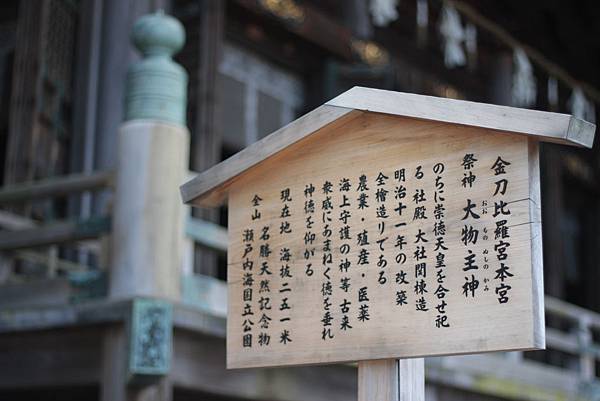 金刀比羅宮本宮
祭神 大物主神
おお もの ぬしの かみ
のちに崇德天皇を合せ祀
る 社殿 大社関棟造
明治十一年の改築
全檜造りである
農業・殖産・医薬
海上守護の神等 古来
衆威にあまねく徳を垂れ
神徳を仰がる
現在地 海抜二五一米
全山 名勝天然記念物
瀬戸内海国立公園